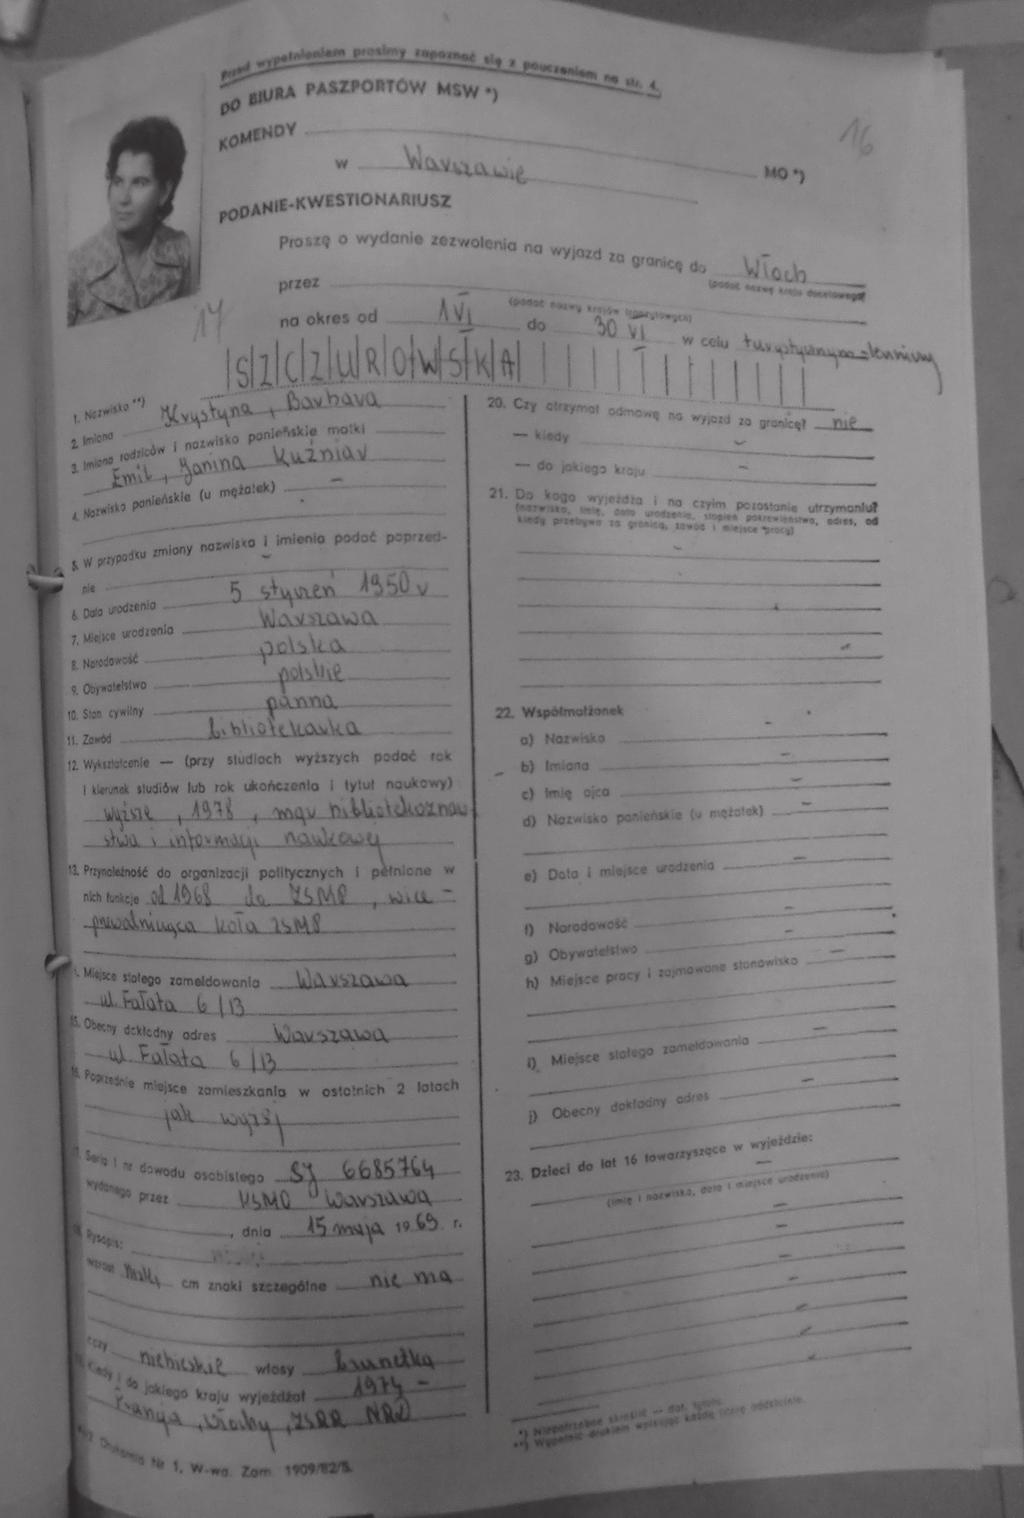 Przed wypełnieniem prosimy zapoznać się z pouczeniem na str. 4.
16
DO BIURA PASZPORTÓW MSW *)
KOMENDY MO *)
w Warszawie
PODANIE-KWESTIONARIUSZ
Proszę o wydanie zezwolenia na wyjazd za granicę do Włoch
(podać nazwę kraju docelowego)
przez
(podać nazwy krajów tranzytowych)
17
na okres od 1 VI do 30 VI w celu turystycznym
SZCZUROWSKA
1. Nazwisko **)
2. Imiona Krystyna, Barbara
3. Imiona rodziców i nazwisko panieńskie matki
Emil, Janina Kuźniar
4. Nazwisko panieńskie (u mężatek) –
5. W przypadku zmiany nazwiska i imienia podać poprzed-
nie –
6. Data urodzenia 5 styczeń 1950 r
7. Miejsce urodzenia Warszawa
8. Narodowość polska
9. Obywatelstwo polskie
10. Stan cywilny panna
11. Zawód bibliotekarka
12. Wykształcenie — (przy studiach wyższych podać rok
i kierunek studiów lub rok ukończenia i tytuł naukowy)
wyższe, 1978, mgr bibliotekoznaw
stwa i informacji naukowej
13. Przynależność do organizacji politycznych i pełnione w
nich funkcje od 1968 do ZSMP, wice-
przewodnicząca koła ZSMP
Miejsce stałego zameldowania Warszawa
ul. Fałata 6/13
15. Obecny dokładny adres Warszawa
ul. Fałata 6/13
16. Poprzednie miejsce zamieszkania w ostatnich 2 latach
jak wyżej
Seria i nr dowodu osobistego SJ 6685764
wydanego przez KSMO Warszawa
, dnia 15 maja 1969. r.
Rysopis:
wzrost niski cm znaki szczególne nie ma
oczy niebieskie włosy brunetka
Kiedy i do jakiego kraju wyjeżdżał 1974 -
Francja, Włochy, ZSRR NRD
Drukarnia Nr 1, W-wa. Zam. 1909/82/S.
20. Czy otrzymał odmowę na wyjazd za granicę? nie
— kiedy –
— do jakiego kraju –
21. Do kogo wyjeżdża i na czyim pozostanie utrzymaniu?
(nazwisko, imię, data urodzenia, stopień pokrewieństwa, adres, od
kiedy przebywa za granicą, zawód i miejsce pracy)
–
22. Współmałżonek –
a) Nazwisko
b) Imiona –
c) Imię ojca –
d) Nazwisko panieńskie (u mężatek) –
e) Data i miejsce urodzenia –
f) Narodowość –
g) Obywatelstwo –
h) Miejsce pracy i zajmowane stanowisko –
i) Miejsce stałego zameldowania –
j) Obecny dokładny adres –
23. Dzieci do lat 16 towarzyszące w wyjeździe:
–
(imię i nazwisko, data i miejsce urodzenia)
–
–
–
–
–
–
–
*) Niepotrzebne skreślić
**) Wypełnić drukiem wpisując każdą literę oddzielnie.